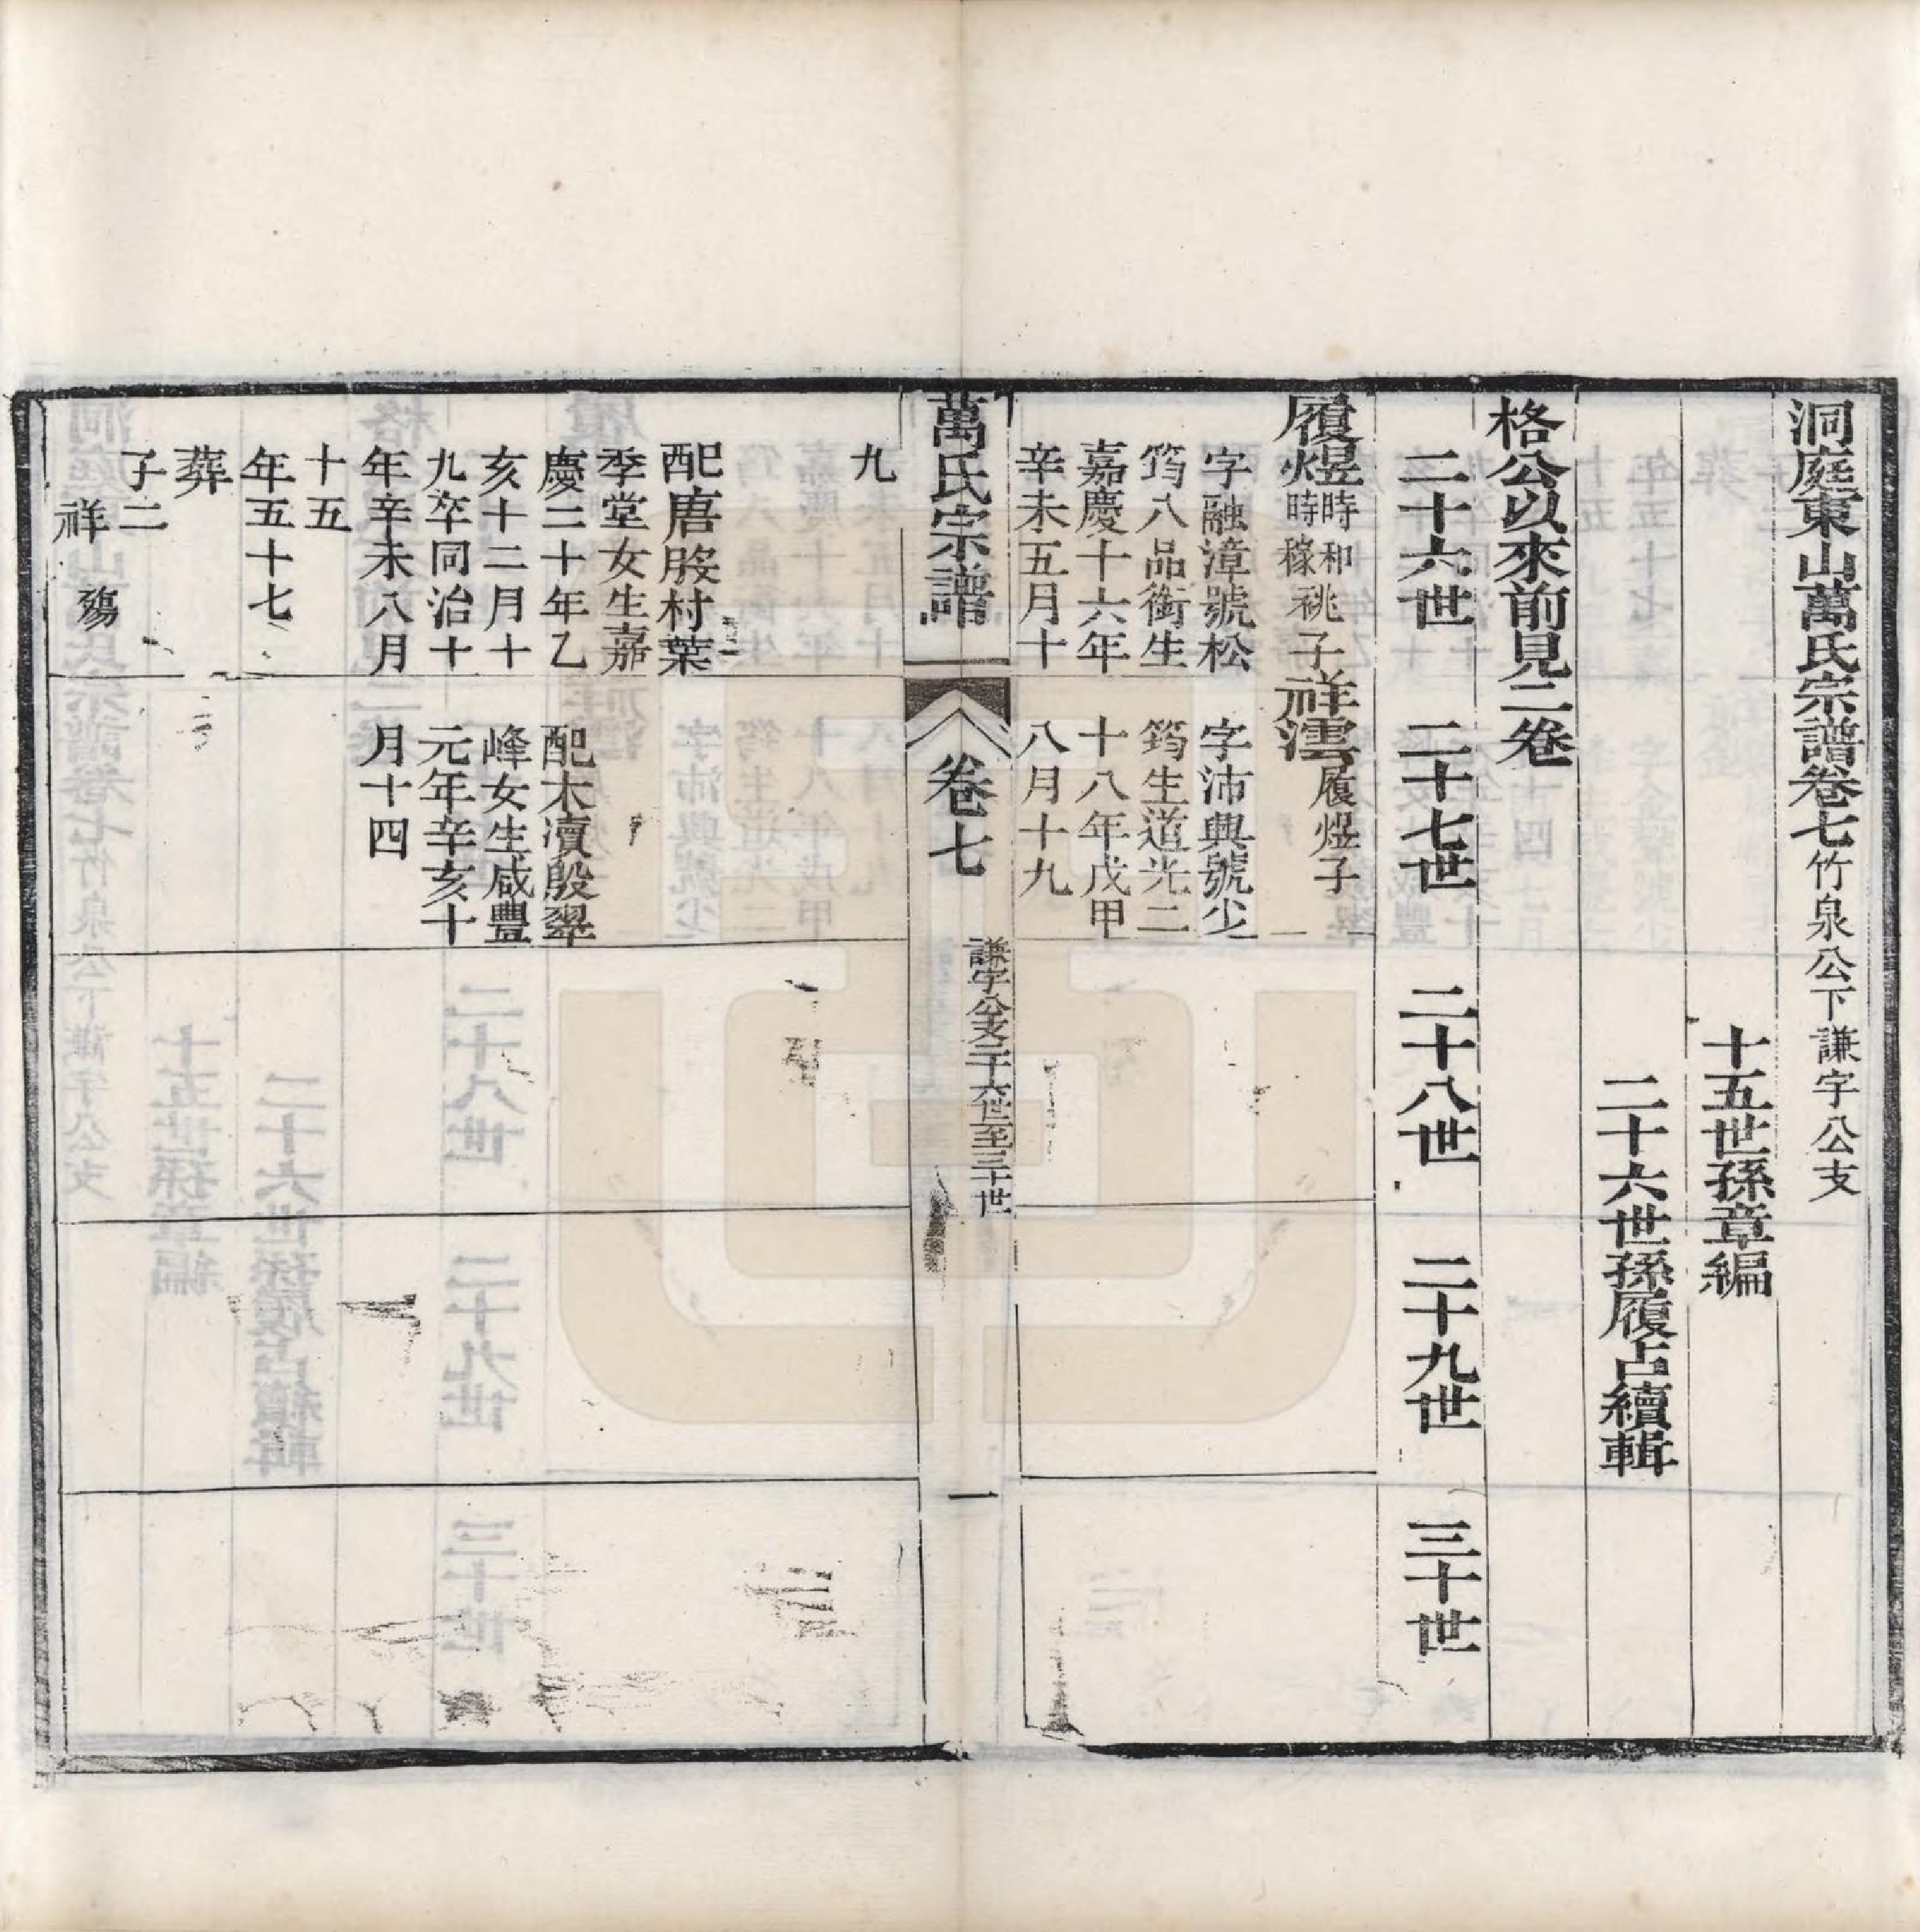 洞庭東山萬氏宗譜卷七竹泉公下謙字公支
十五世孫章編
二十六世孫履占續輯
格公以來前見二卷
二十六世
二十七世
二十八世
二十九世
三十世
履煜時和桃子
時稼
字融漳號松
筠八品銜生
嘉慶十六年
辛未五月十
祥澐履煜子
字沛興號少
筠生道光二
十八年戊甲
八月十九
萬氏宗譜
卷七
謙字公支二十六世至三十世
一
九
配唐股村葉
季堂女生嘉
慶二十年乙
亥十二月十
九卒同治十
年辛未八月
十五
年五十七
葬
子二
祥
殤
配木瀆殷翠
峰女生咸豐
元年辛亥十
月十四